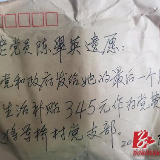 老党员陈翠英遗愿:
党和政府发给她的最后一个月
生活补贴345元作为党费
村党支部.
20